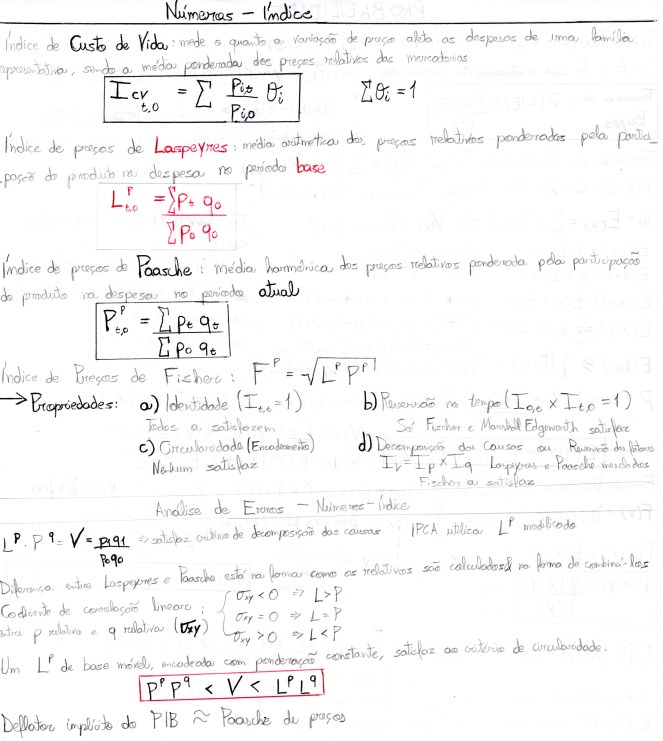 Números - Índice
Índice de Custo de Vida: mede o quanto a variação de preço afeta as despesas de uma família
representativa, sendo a média ponderada dos preços relativos das mercadorias
I cv t,0 = ∑ pi,t / pi,0 θi     ∑ θi = 1
Índice de preços de Laspeyres: média aritmética dos preços relativos ponderados pela partici_
pação do produto na despesa no período base
L^P t,0 = ∑ pt q0 / ∑ p0 q0
Índice de preços de Paasche: média harmônica dos preços relativos ponderada pela participação
do produto na despesa no período atual
P^P t,0 = ∑ pt qt / ∑ p0 qt
Índice de Preços de Fisher: F^P = √L^P P^P
→ Propriedades: a) Identidade (I t,t = 1)     b) Reversão no tempo (I 0,t × I t,0 = 1)
Todos a satisfazem     Só Fischer e Marshal Edgeworth satisfaz
c) Circularidade (Encadeamento)     d) Decomposição das causas ou Reversão dos fatores
Nenhum satisfaz     Iv = Ip × Iq Laspeyres e Paasche mesclados
Fischer a satisfaz
Análise de Erros - Números-Índice
L^P . P^q = V = p1q1 / p0q0 => satisfaz critério de decomposição das causas     IPCA utiliza L^P modificado
Diferença entre Laspeyres e Paasche está na forma como os relativos são calculados & na forma de combiná-los
Coeficiente de correlação linear: { σxy < 0 => L > P
entre p relativo e q relativa (σxy)     σxy = 0 => L = P
σxy > 0 => L < P
Um L^P de base móvel, encadeada com ponderação constante, satisfaz ao critério de circularidade.
P^P P^q < V < L^P L^q
Deflator implícito do PIB ≈ Paasche de preços